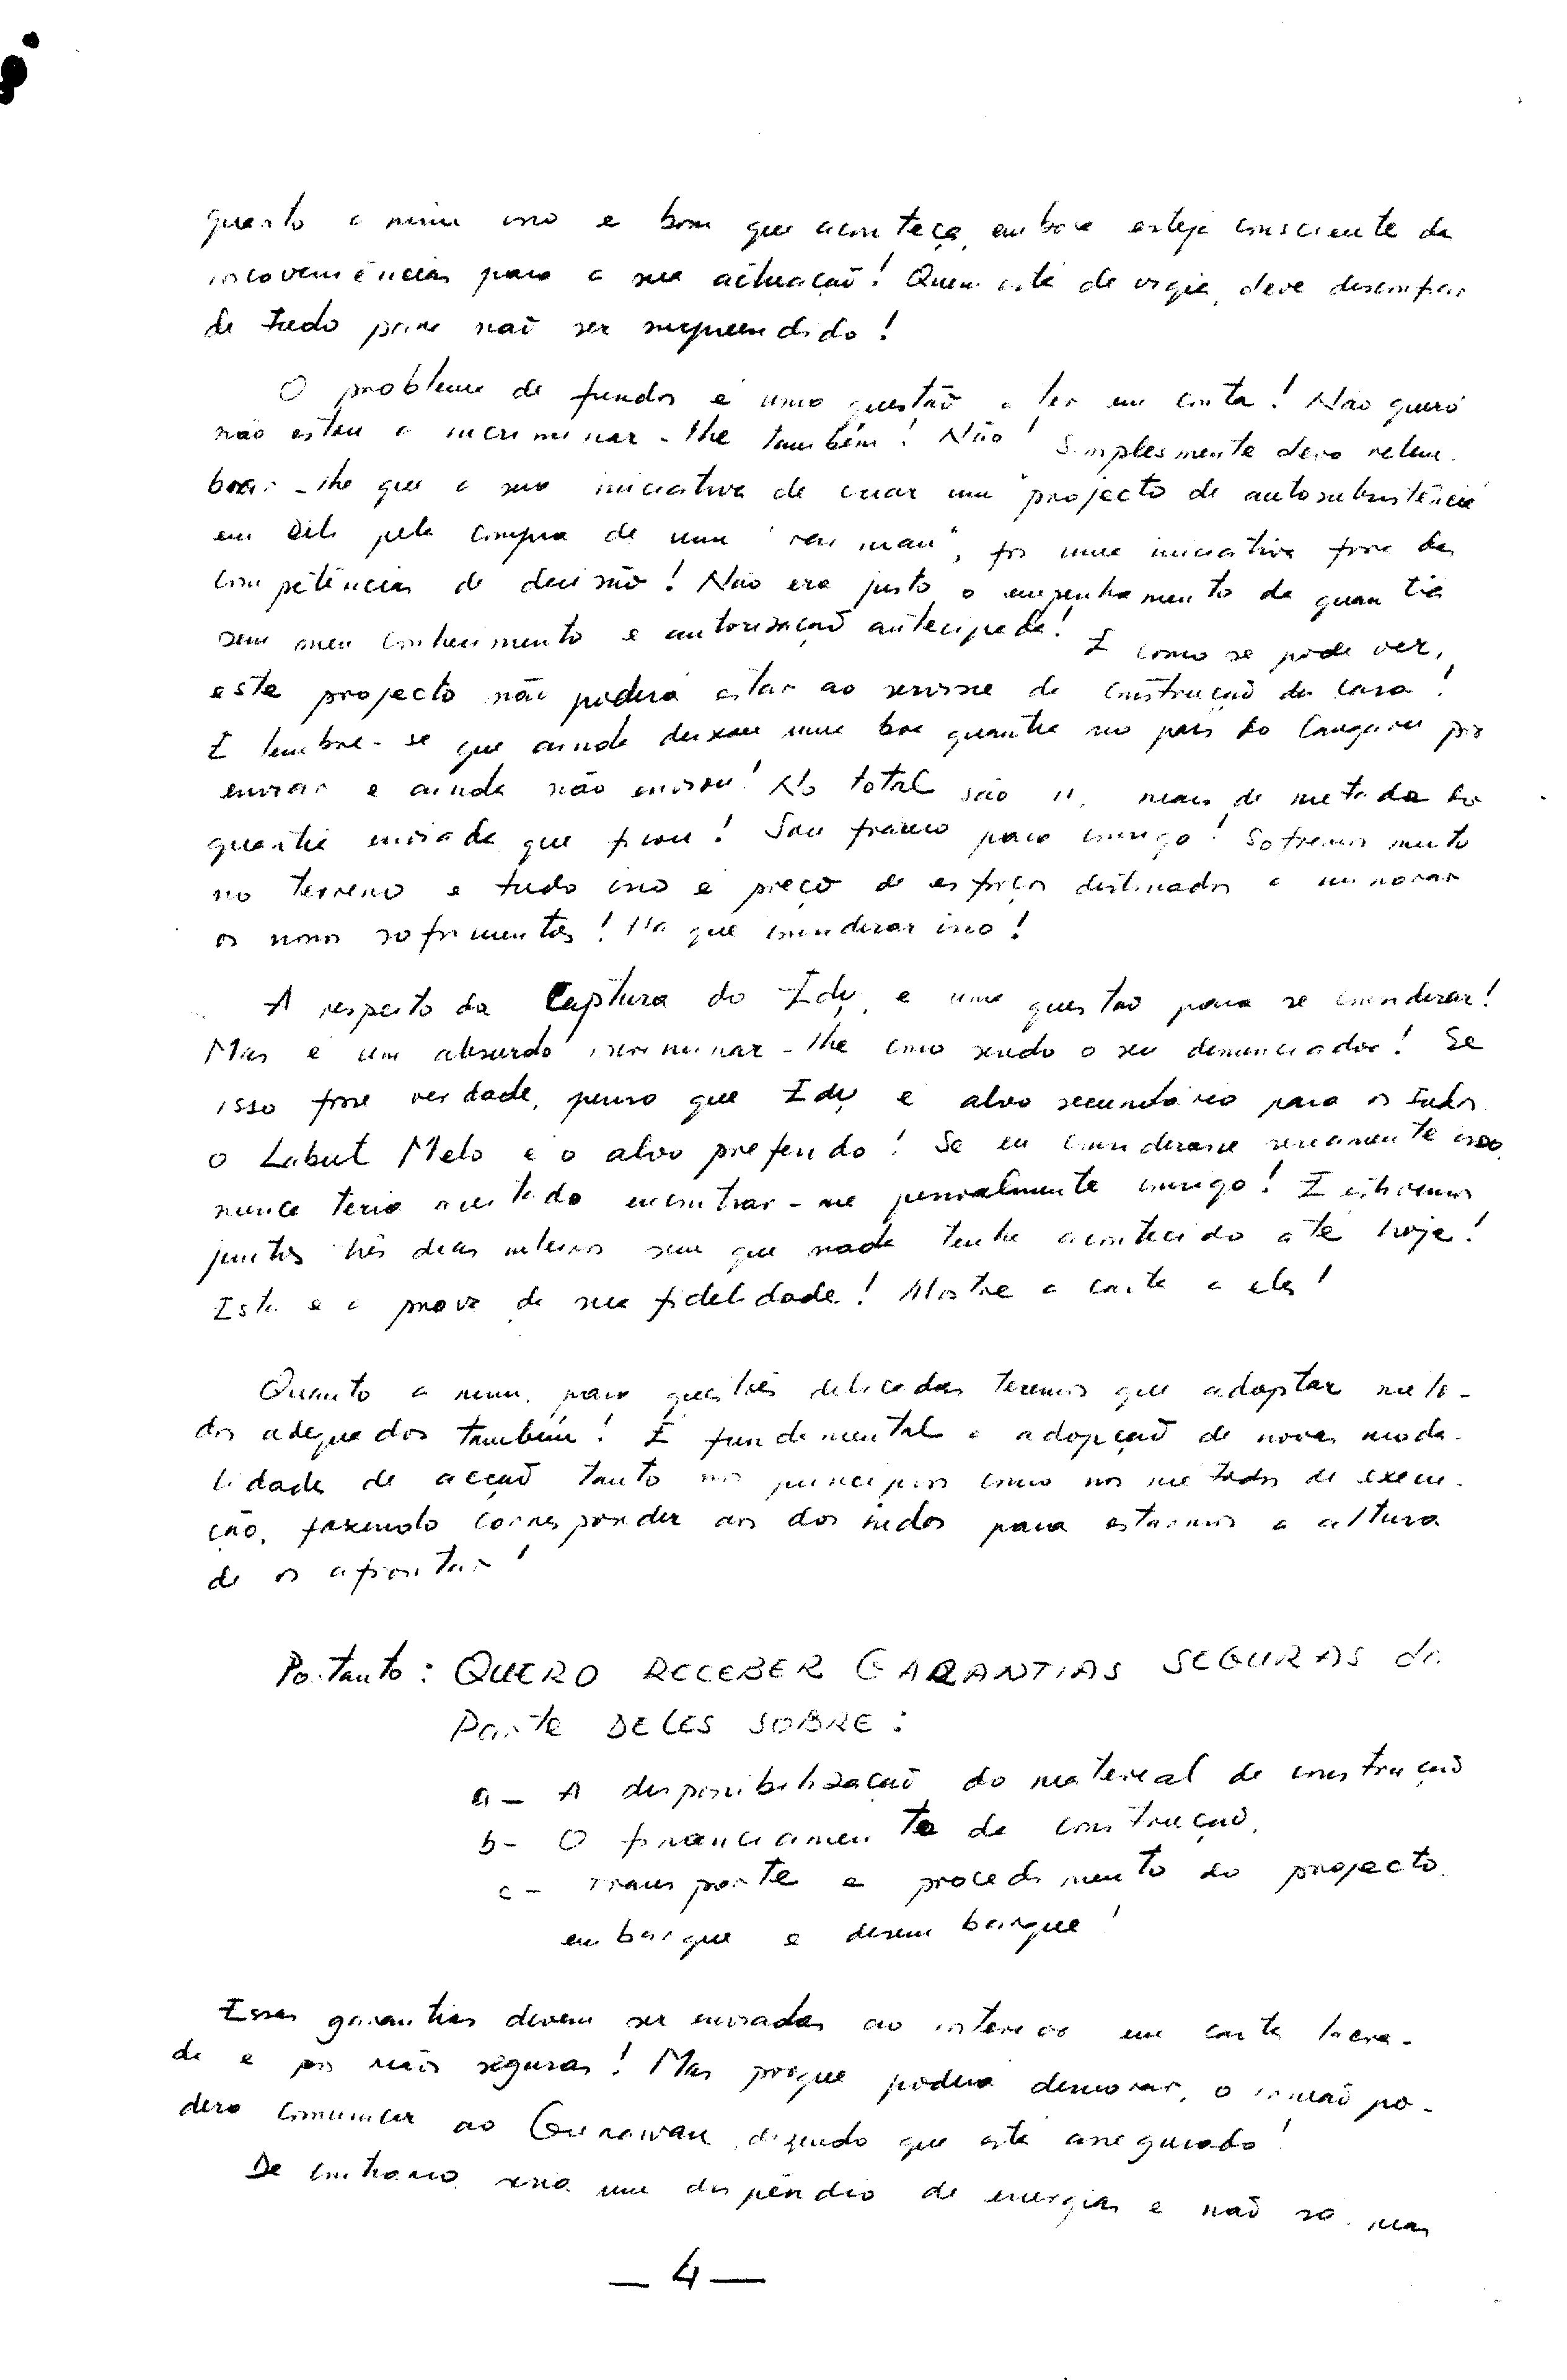 quanto a mim isso é bom que aconteça, embora esteja consciente da
incoveniências para a sua actuação! Quem está de vigia, deve desconfiar
de tudo para não ser surpreendido!
O problema de fundos é uma questão a ter em conta! Não quero
não estou a incriminar-lhe também! Não! Simplesmente devo relem-
brar-lhe que a sua iniciativa de criar um "projecto de autosubsistência
em Dili pela compra de um "        ", foi uma iniciativa fora das
competências de decisão! Não era justo o empenhamento da quantia
sem meu conhecimento e autorização antecipada! E como se pode ver,
este projecto não poderá estar ao serviço de construção da casa!
E lembre-se que ainda deixou uma boa quantia no país do Canguru por
enviar e ainda não enviou! No total são     mais de metade da
quantia enviada que ficou! Sou franco para consigo! Sofremos muito
no terreno e tudo isso é preço de esforços destinados a minorar
os nossos sofrimentos! Há que considerar isso!
A respeito da Captura do Edy, é uma questão para se considerar!
Mas é um absurdo incriminar-lhe como sendo o seu denunciador! Se
isso fosse verdade, penso que Edy é alvo secundário para os indos.
O Labut Melo é o alvo preferido! Se eu considerasse seriamente isso,
nunca teria aceitado encontrar-me pessoalmente consigo! E estivemos
juntos três dias inteiros sem que nada tenha acontecido até hoje!
Esta é a prova de sua fidelidade! Mostre a carta a eles!
Quanto a mim, para questões delicadas teremos que adoptar méto-
dos adequados também! É fundamental a adopção de novas moda-
lidades de acção tanto nos princípios como nos métodos de execu-
ção, fazendo corresponder aos dos indos para estarmos a altura
de os afrontar!
Portanto: QUERO RECEBER GARANTIAS SEGURAS da
Parte DELES SOBRE:
a- A disponibilização do material de construção
b- O financiamento da construção.
c- Transporte e procedimento do projecto.
embarque e desembarque!
Essas garantias devem ser enviadas ao interior em carta lacra-
da e por mãos seguras! Mas porque poderá demorar, o irmão po-
dera comunicar ao Gunawan, dizendo que está assegurado!
De contrário, seria um dispêndio de energias e não só, mas
— 4 —